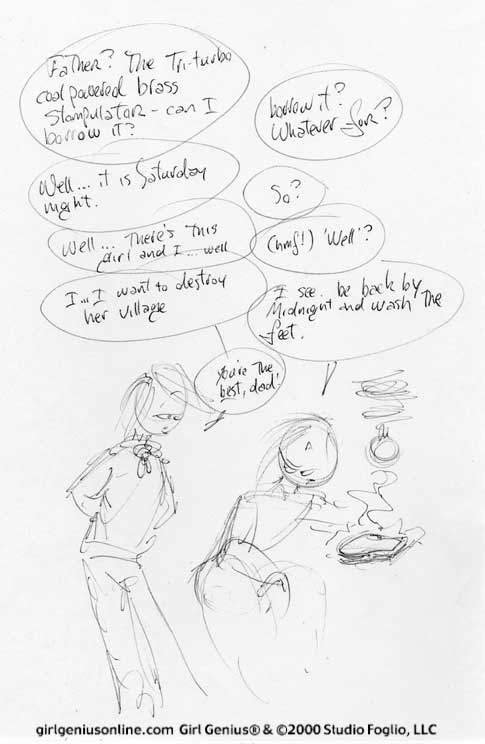 Father? The Tri-turbo
coal powered brass
Stompulator - can I
borrow it?
borrow it?
Whatever for?
Well... it is Saturday
night.
So?
Well... There's this
girl and I... well
(hmf!) 'Well'?
I... I want to destroy
her village
I see. be back by
Midnight and wash the
feet.
You're the
best, dad!
girlgeniusonline.com Girl Genius® & ©2000 Studio Foglio, LLC